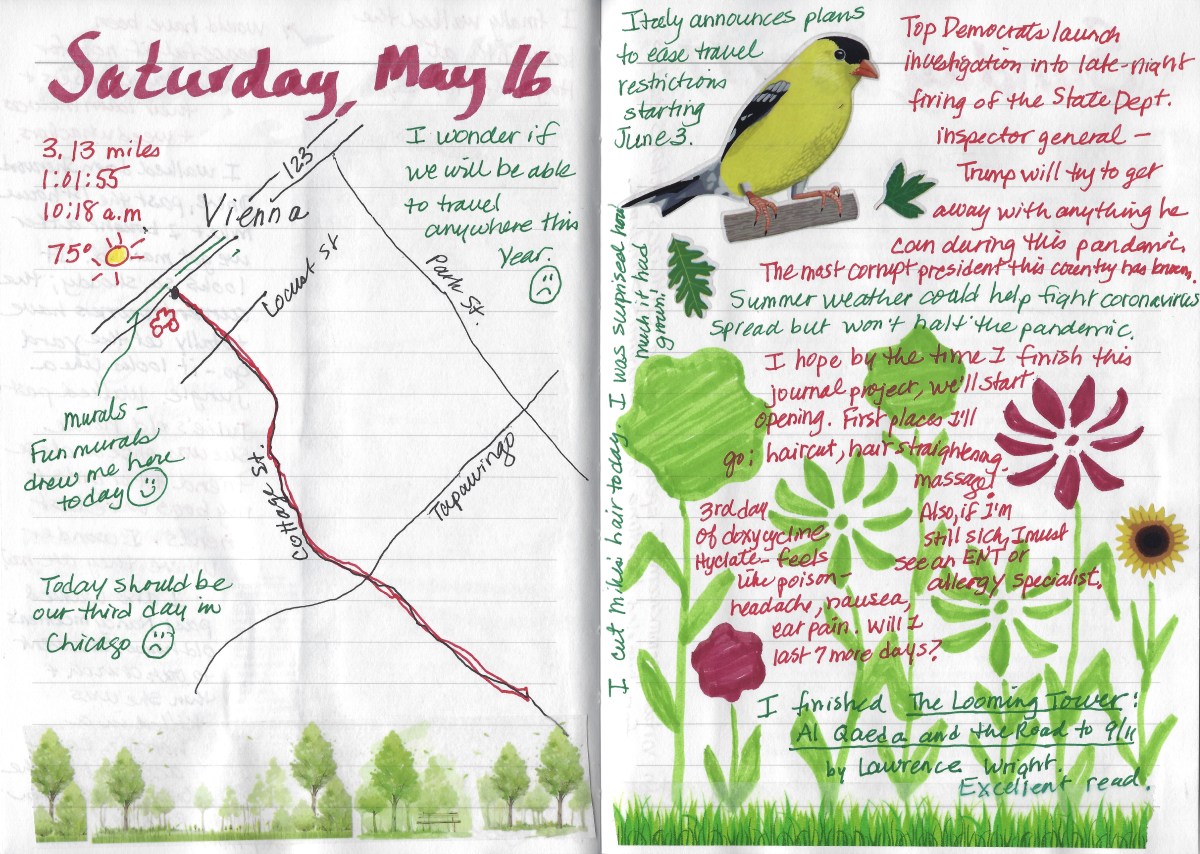 Saturday, May 16
3.13 miles
1:01:55
10:18 a.m
75°
Vienna
123
Locust St
Park St.
Cottage St.
Tapawingo
I wonder if
we will be able
to travel
anywhere this
year.
murals –
Fun murals
drew me here
today
Today should be
our third day in
Chicago
Italy announces plans
to ease travel
restrictions
starting
June 3.
Top Democrats launch
investigation into late-night
firing of the State Dept.
inspector general —
Trump will try to get
away with anything he
can during this pandemic.
The most corrupt president this country has known.
Summer weather could help fight coronavirus
spread but won't halt the pandemic.
I cut Mike's hair today. I was surprised how
much it had
grown!
I hope by the time I finish this
journal project, we'll start
opening. First places I'll
go: haircut, hair straightening
massage!
Also, if I'm
still sick, I must
see an ENT or
allergy specialist.
3rd day
of doxycycline
Hyclate – feels
like poison –
headache, nausea,
ear pain. Will I
last 7 more days?
I finished The Looming Tower:
Al Qaeda and the Road to 9/11
by Lawrence Wright.
Excellent read.